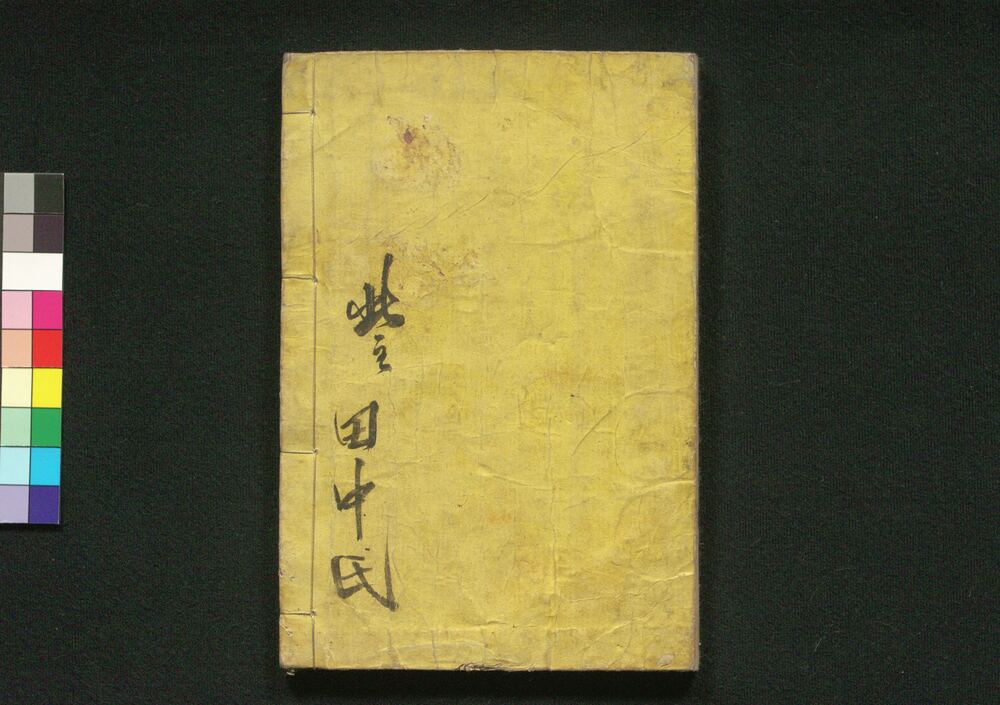 此主田中氏